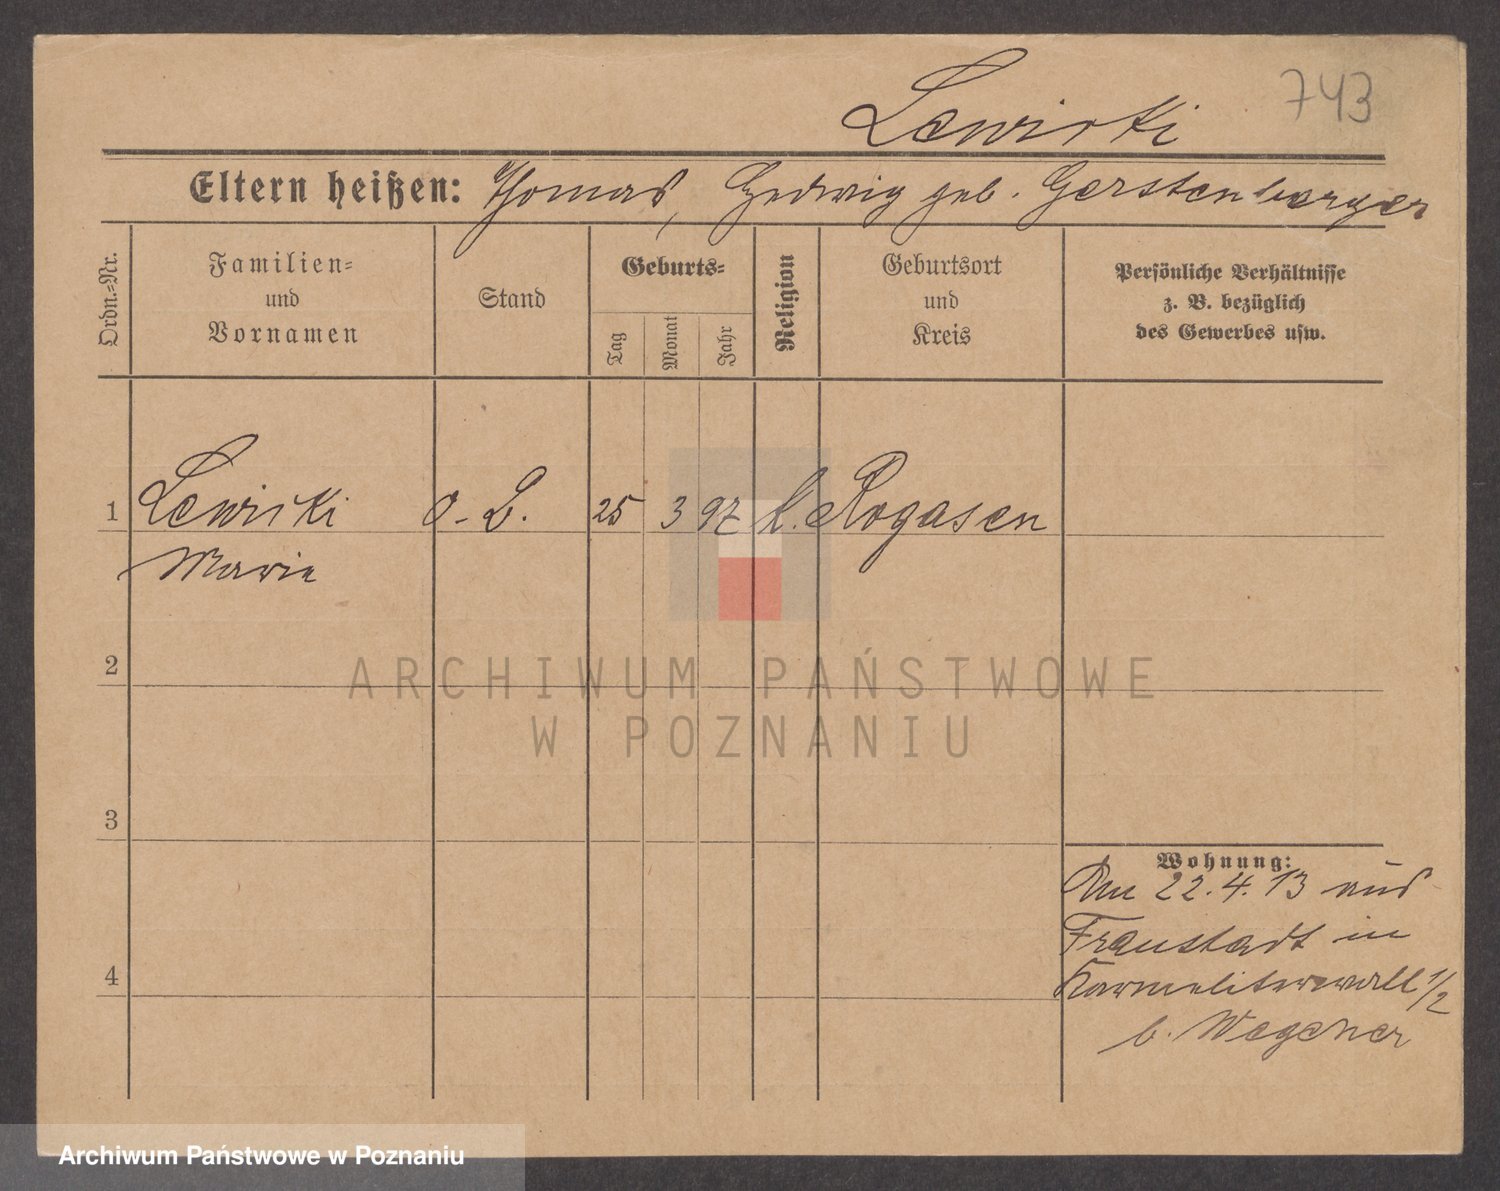 743
Lewicki
Eltern heißen: Thomas, Hedwig geb. Gerstenberger
Ordn.-Nr.
Familien-
und
Vornamen
Stand
Geburts-
Tag
Monat
Jahr
Religion
Geburtsort
und
Kreis
Persönliche Verhältnisse
z. B. bezüglich
des Gewerbes usw.
1 Lewicki o. B. 25 3 97 k. Rogasen
Marie
2
3
4
Wohnung:
Am 22.4.13 aus
Fraustadt in
Karmeliterwall 1/2
b. Wegener
ARCHIWUM PAŃSTWOWE
W POZNANIU
Archiwum Państwowe w Poznaniu